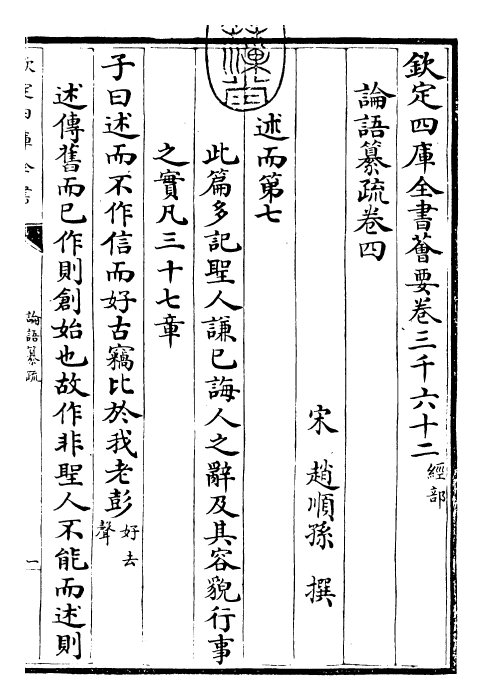 欽定四庫全書薈要卷三千六十二 經部
論語纂疏卷四
宋 趙順孫 撰
述而第七
此篇多記聖人謙已誨人之辭及其容貌行事
之實凡三十七章
子曰述而不作信而好古竊比於我老彭 好去聲
述傳舊而已作則創始也故作非聖人不能而述則
欽定四庫全書
論語纂疏
一